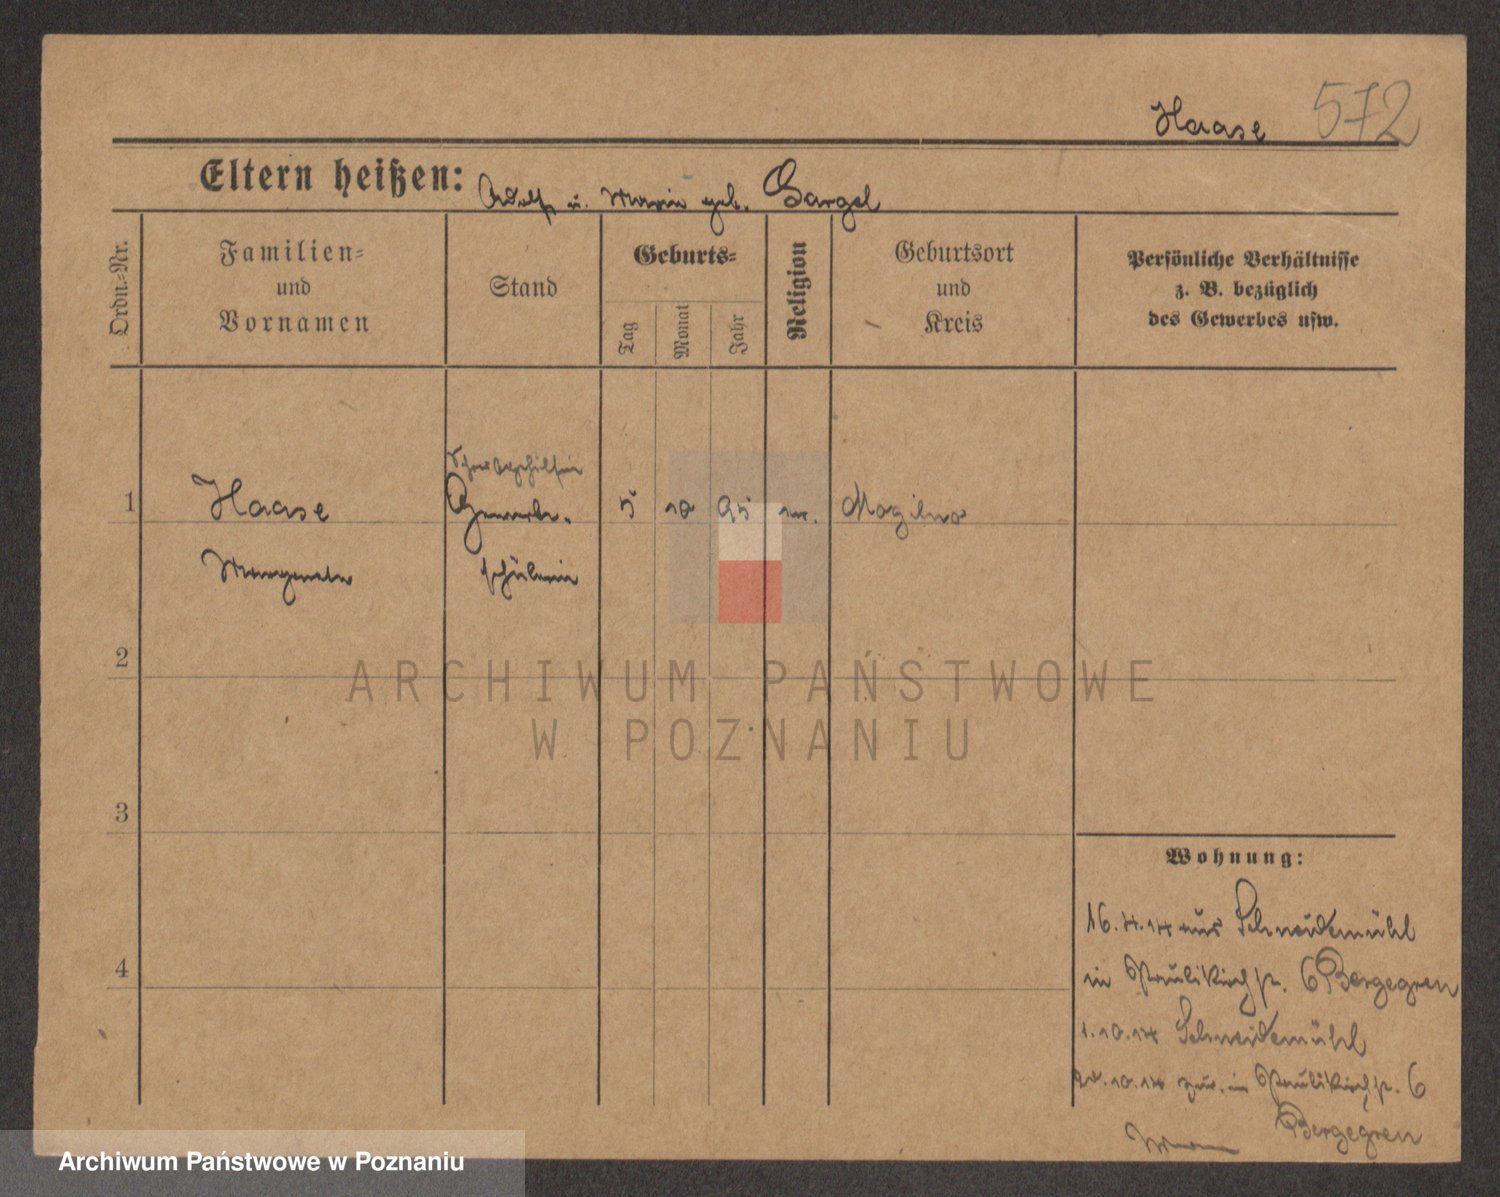 Haase 572
Eltern heißen: Adolf u. Marie geb. Gargel
Ordn.-Nr.
Familien-
und
Vornamen
Stand
Geburts-
Tag
Monat
Jahr
Religion
Geburtsort
und
Kreis
Persönliche Verhältnisse
z. B. bezüglich
des Gewerbes usw.
1 Haase Gewerbe- 5 10 95 Mogilno
Margarete schülerin
2
3
4
Wohnung:
16.4.14 aus Schneidemühl
in Paulikirchstr. 6 Bergegren
1.10.14 Schneidemühl
.10.14 zur. in Paulikirchstr. 6
Bergegren
ARCHIWUM PAŃSTWOWE
W POZNANIU
Archiwum Państwowe w Poznaniu